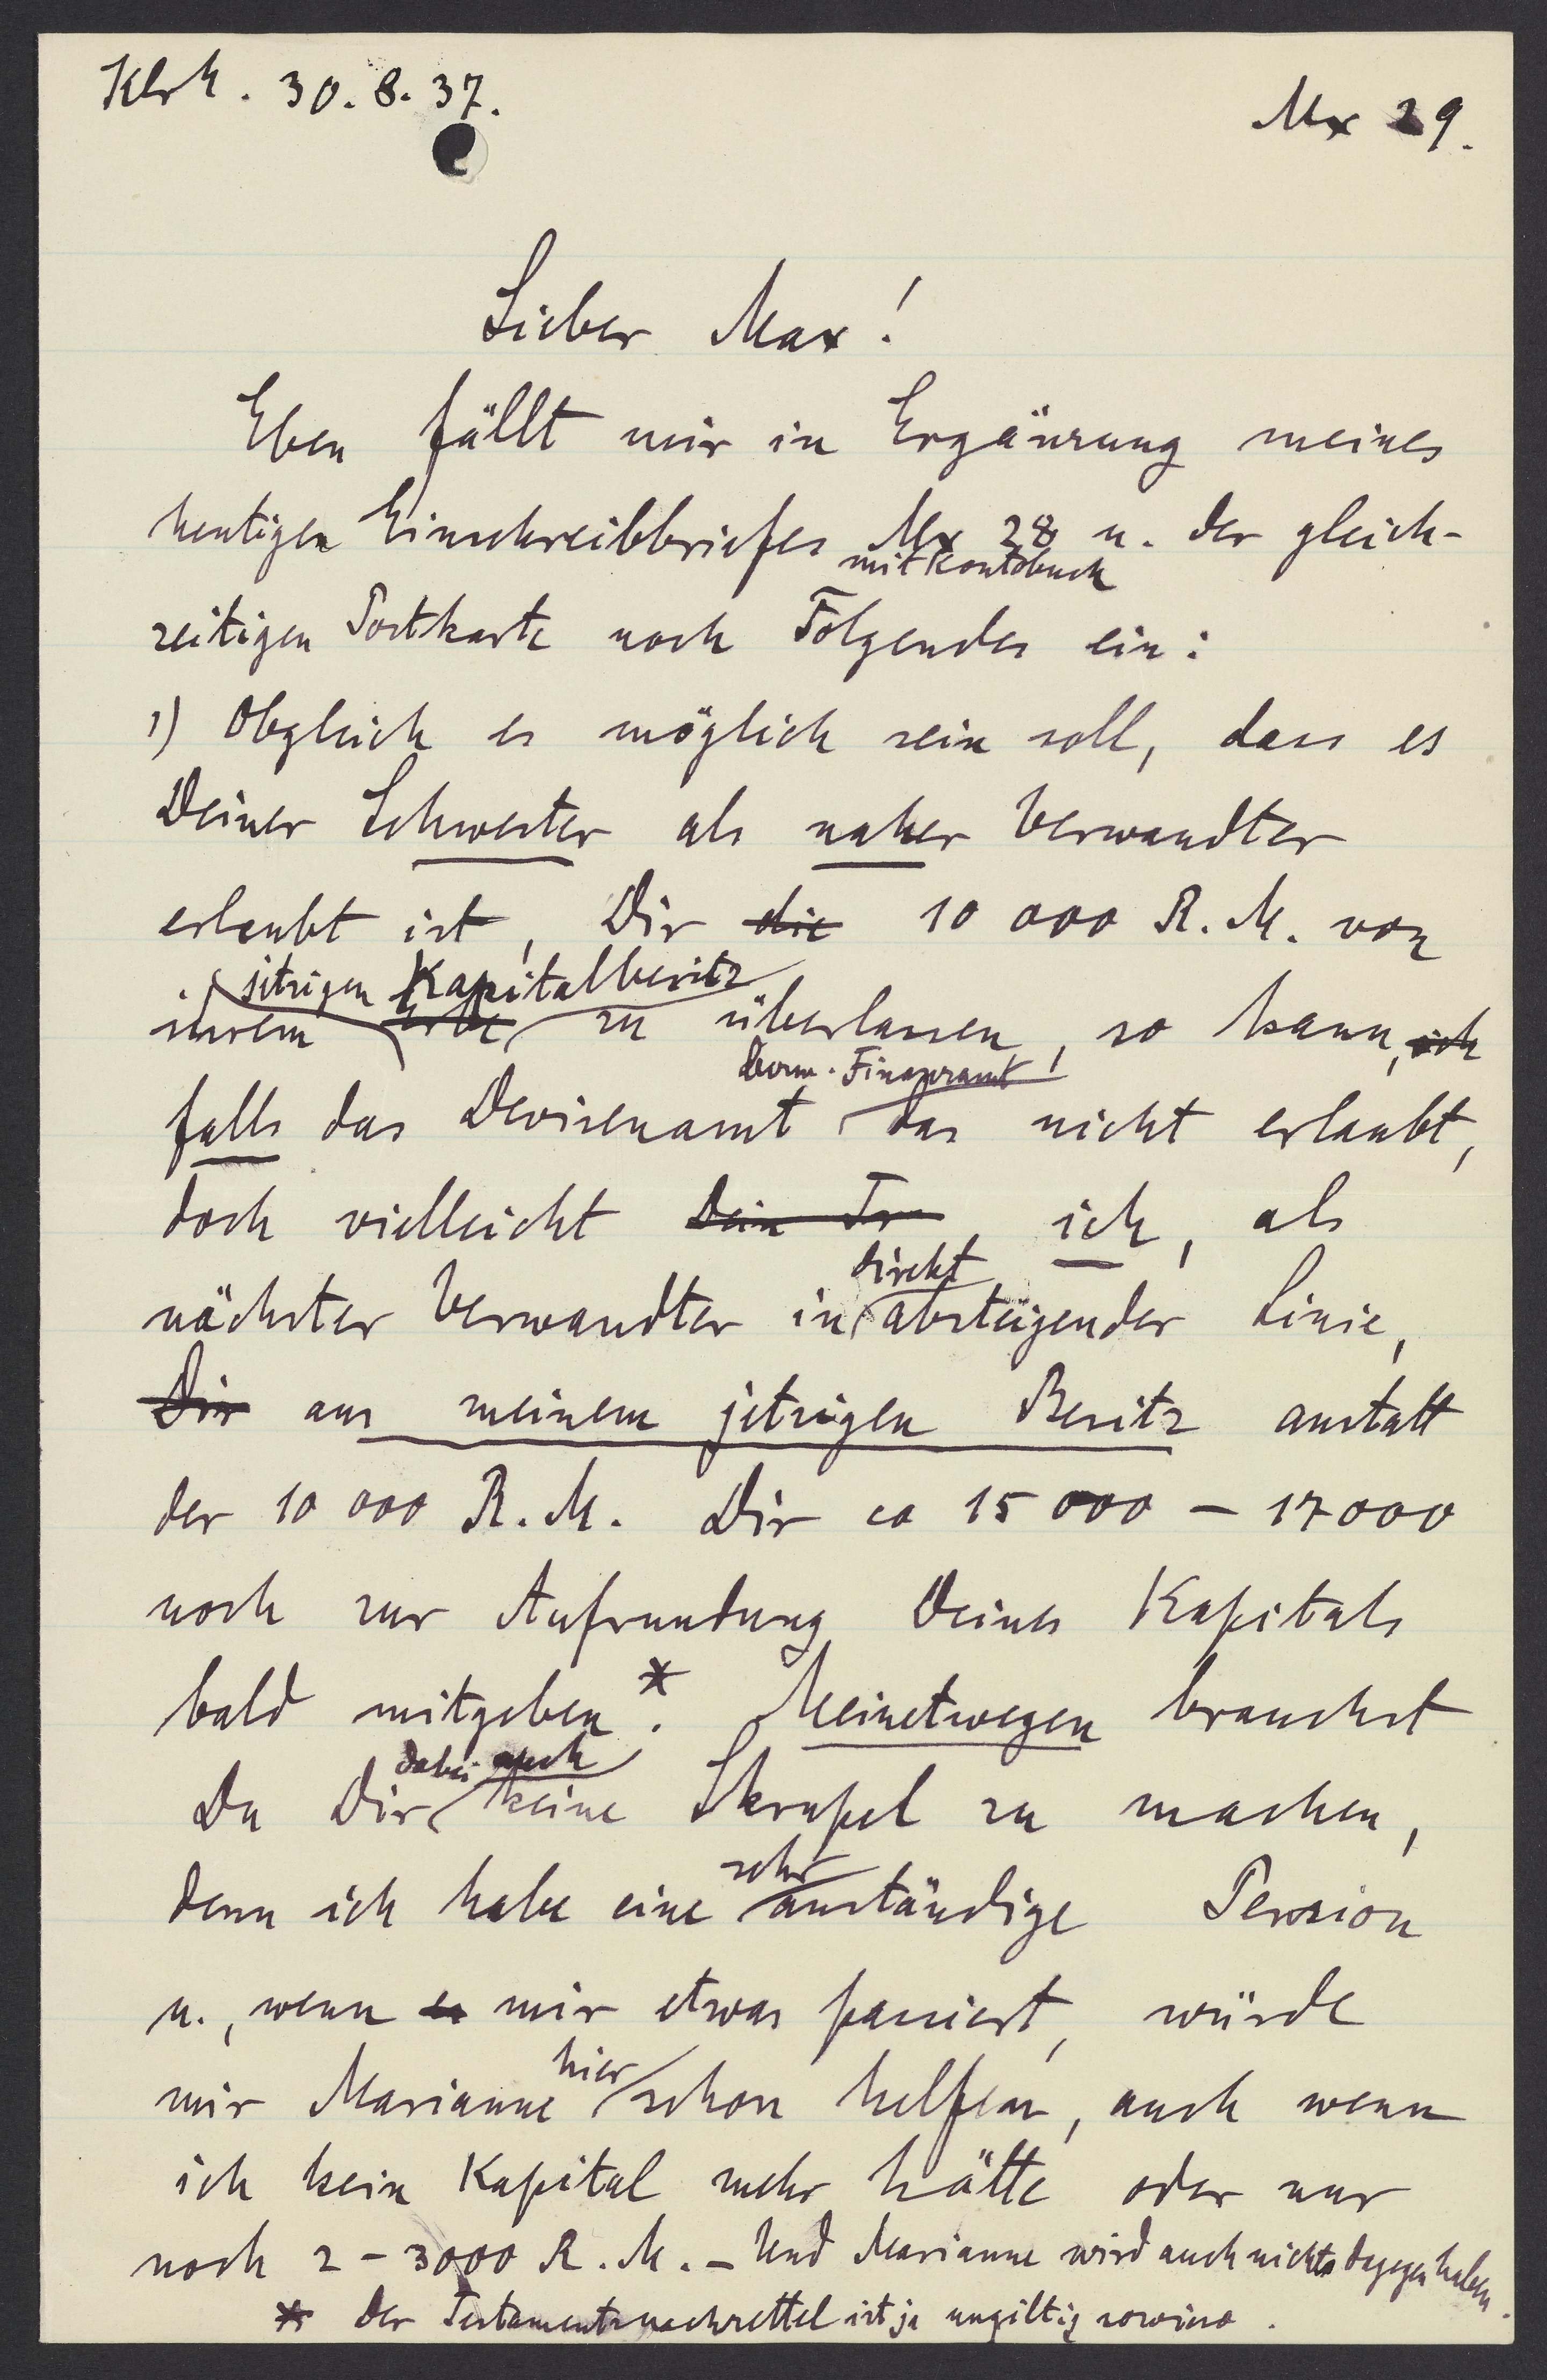 Klrh. 30.8.37.
Mx 29.
Lieber Max!
Eben fällt mir in Ergänzung meines
heutigen Einschreibbriefes Mx 28 u. der gleich-
mit Kontobuch
zeitigen Postkarte noch Folgendes ein:
1) Obgleich es möglich sein soll, dass es
Deiner Schwester als naher Verwandter
erlaubt ist, Dir die 10 000 R.M. von
jetzigen Kapitalbesitz
ihrem Erbe zu überlassen, so kann, ich
bezw. Finanzamt
falls das Devisenamt das nicht erlaubt,
doch vielleicht Dein Tr ich, als
direkt
nächster Verwandter in absteigender Linie,
Dir aus meinem jetzigen Besitz anstatt
der 10 000 R.M. Dir ca 15 000 – 17000
noch zur Aufrundung Deines Kapitals
bald mitgeben*. Meinetwegen brauchst
dabei auch
Du Dir keine Skrupel zu machen,
sehr
denn ich habe eine anständige Pension
u., wenn es mir etwas passiert, würde
hier
mir Marianne schon helfen, auch wenn
ich kein Kapital mehr hätte oder nur
noch 2 – 3000 R.M. – Und Marianne wird auch nichts dagegen haben.
* Der Testamentsnachzettel ist ja ungiltig sowieso.